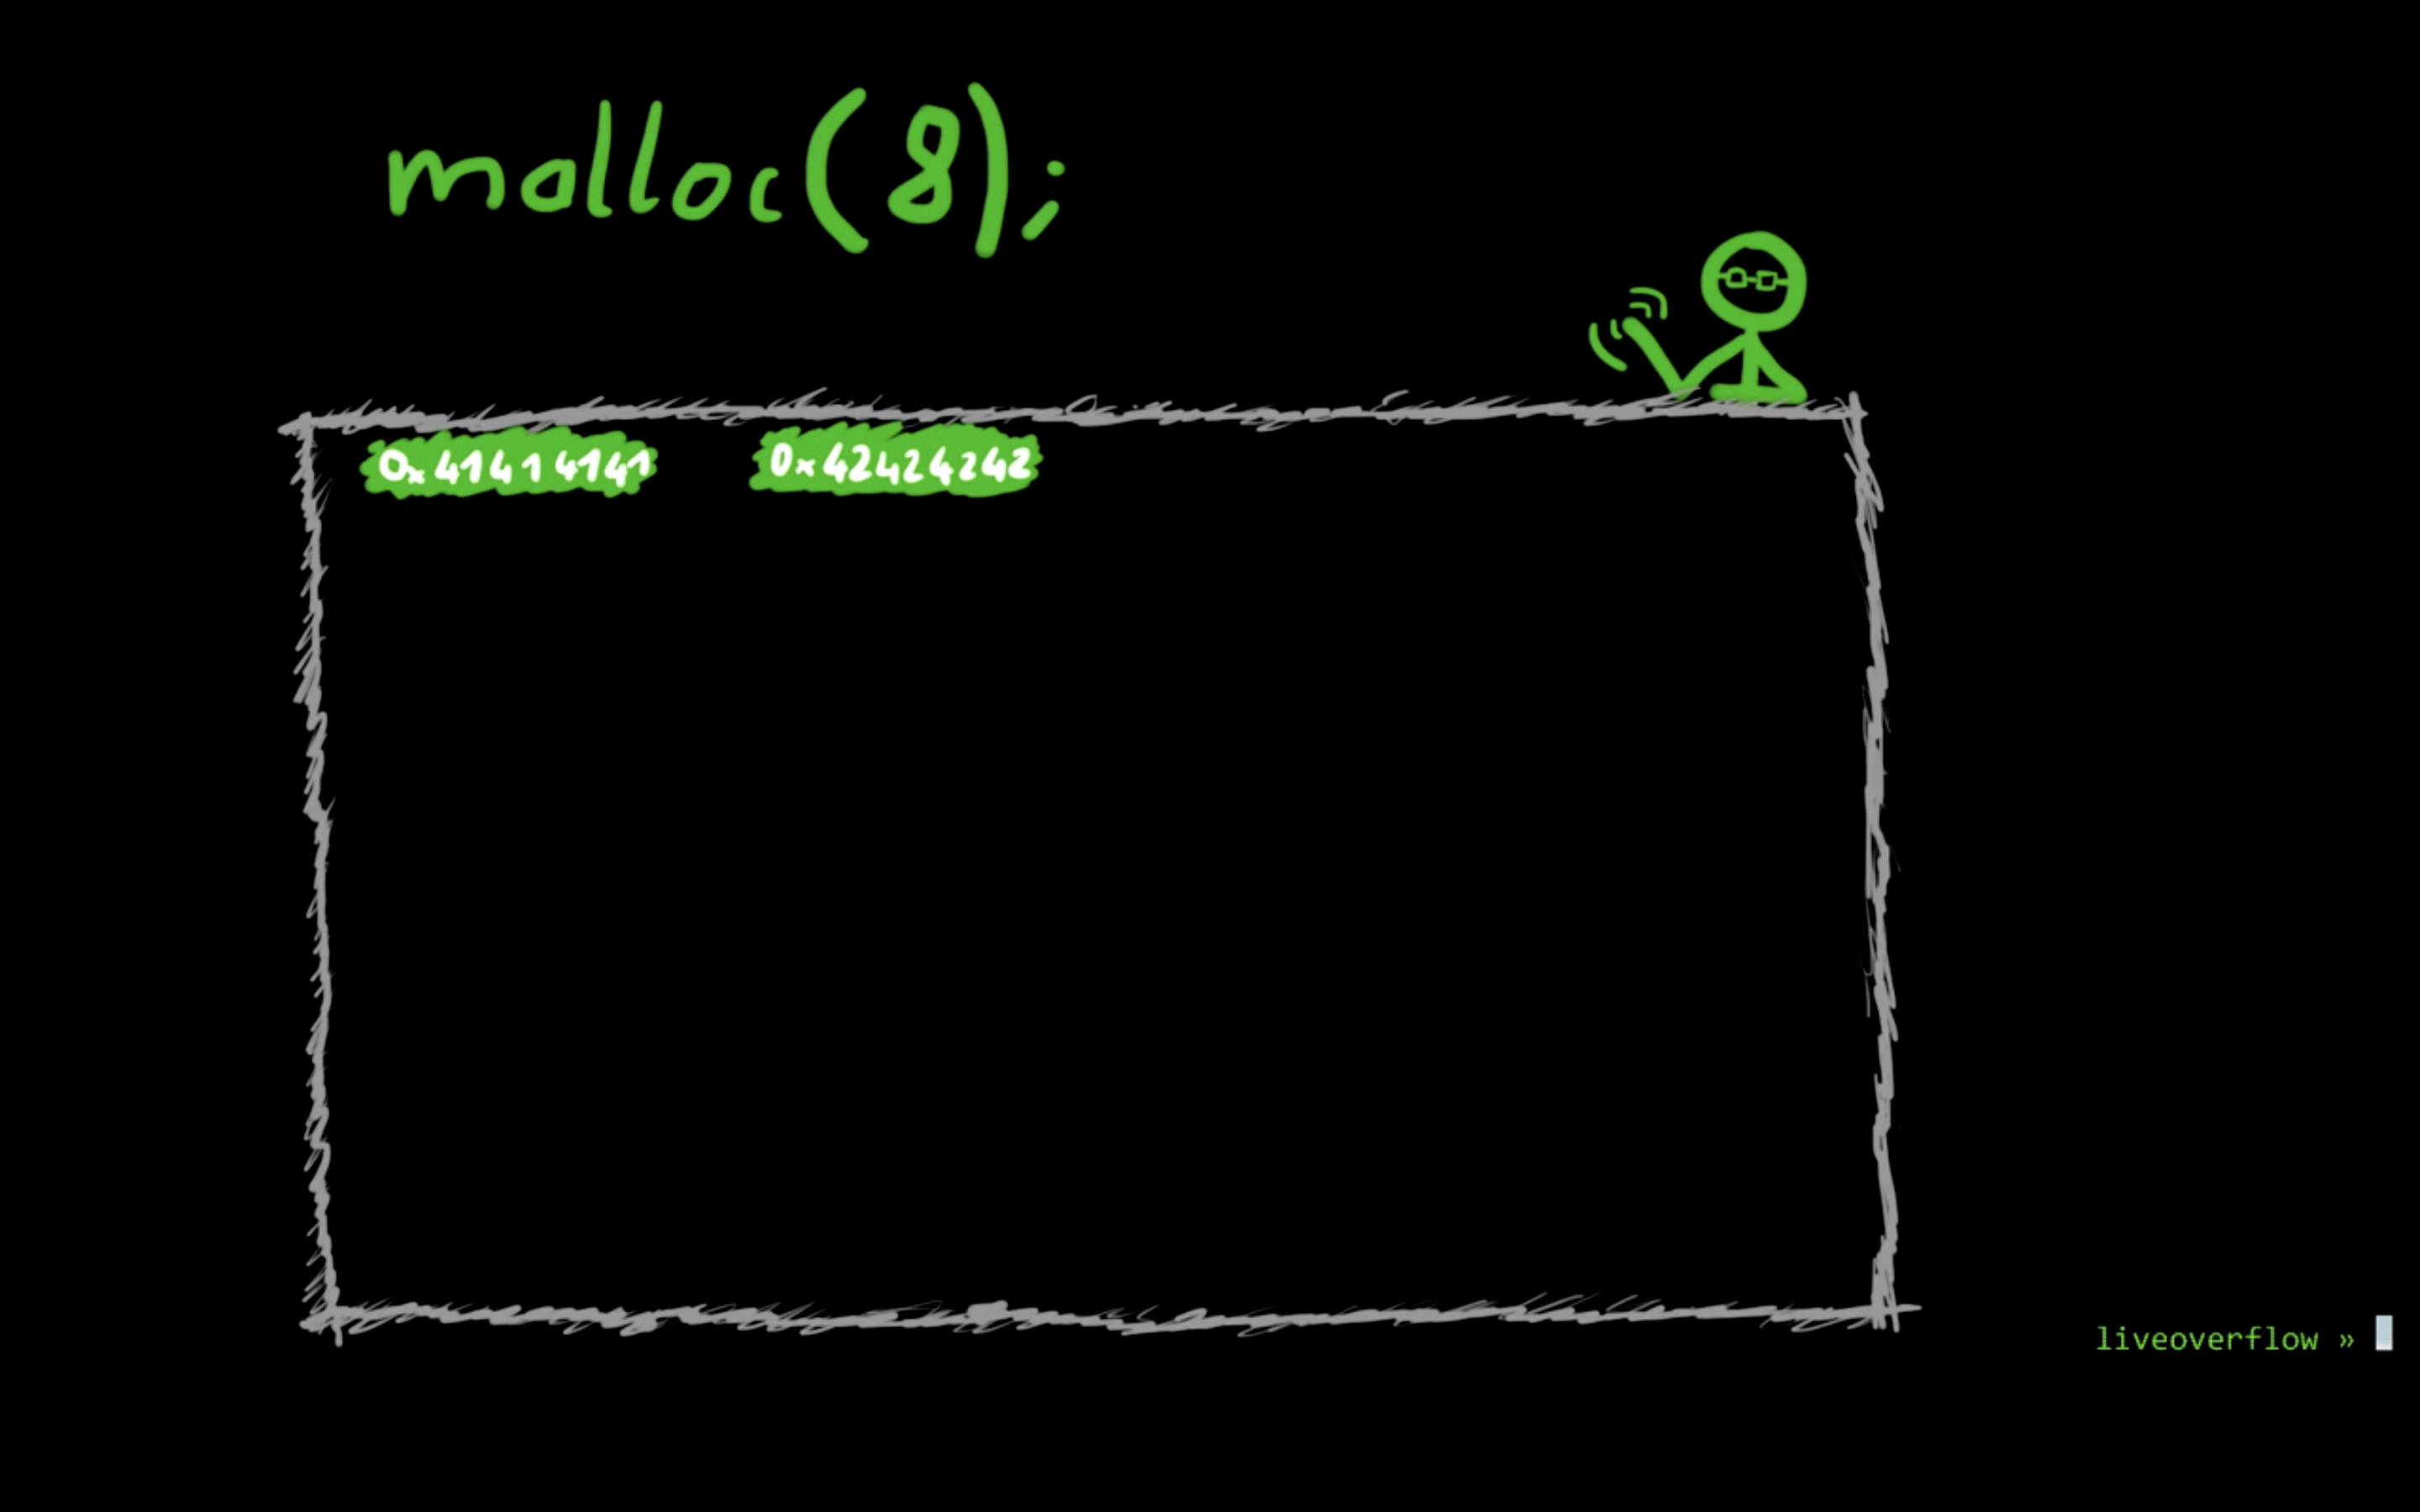 malloc(8);
0x41414141 0x42424242
liveoverflow »